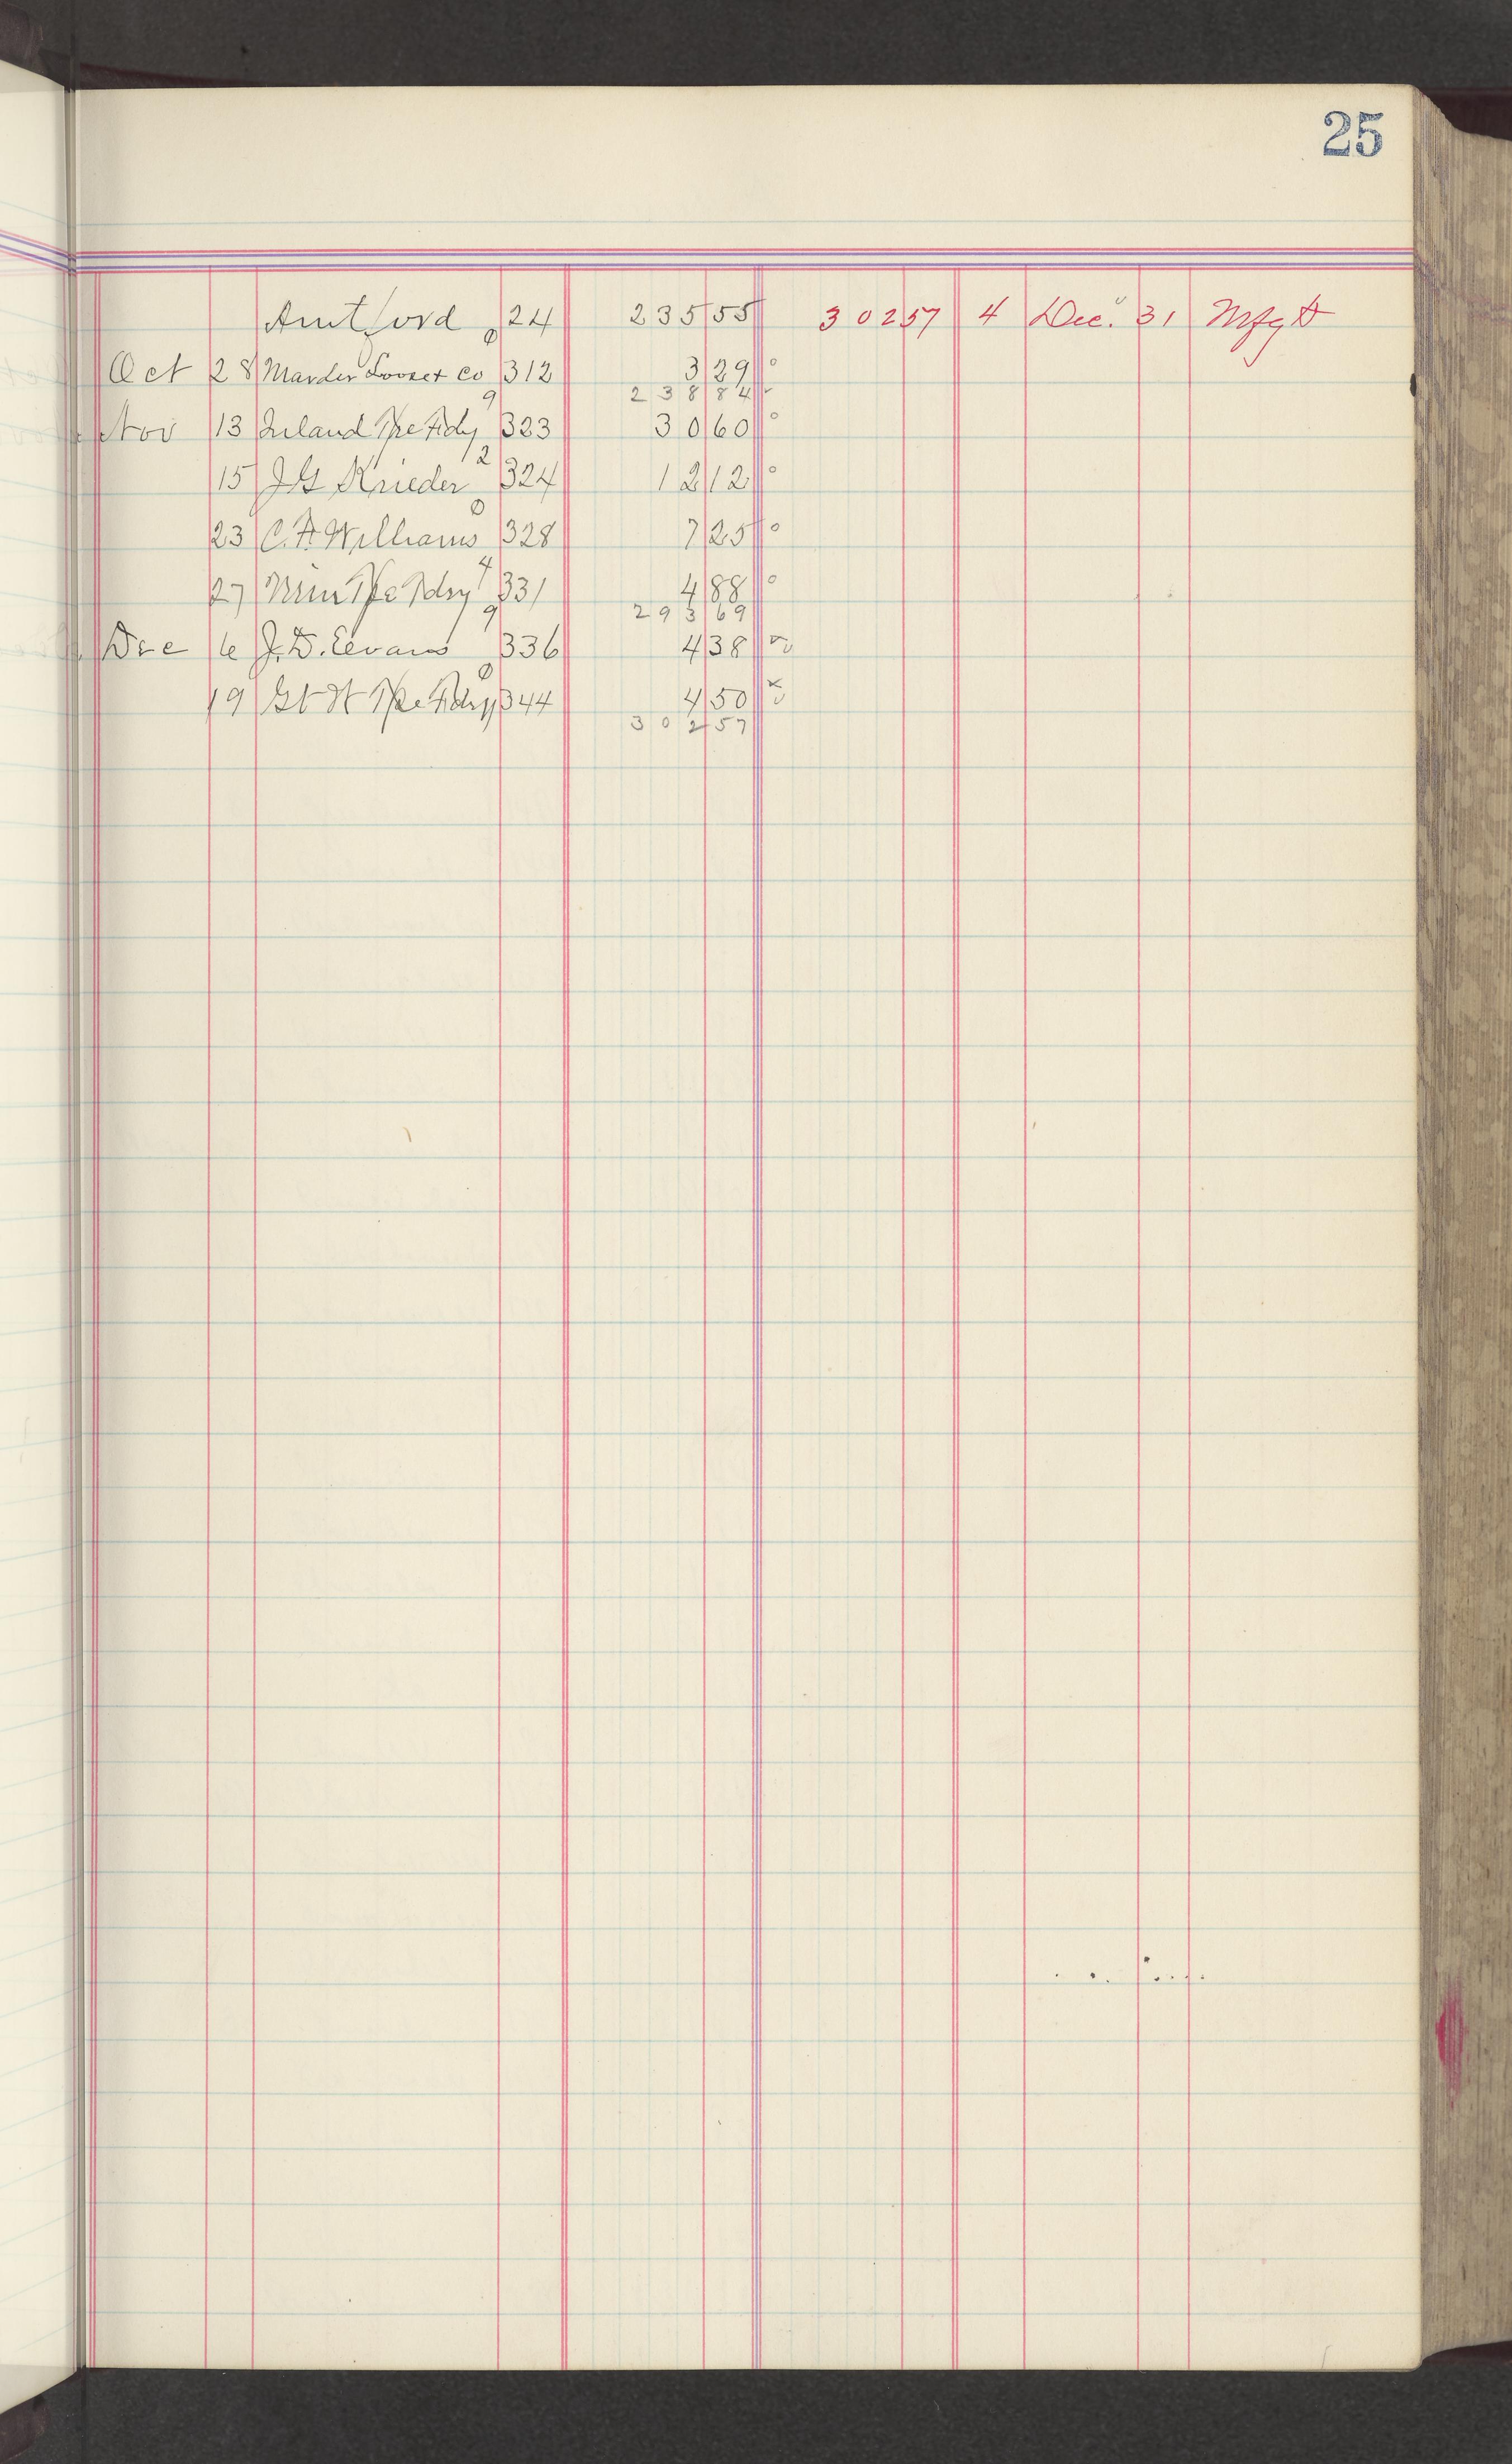 25
Amt ford 24 235 55 302 57 4 Dec. 31 Mfg
Oct 28 Marder Loose & Co 312 3 29
238 84
Nov 13 Inland Type Fdy 323 30 60
15 J G Krieder 324 12 12
23 C. F. Williams 328 7 25
27 Type Fdry 331 4 88
293 69
Dec 6 J. D. Eevans 336 4 38
19 Gt W Type Fdry 344 4 50
302 57